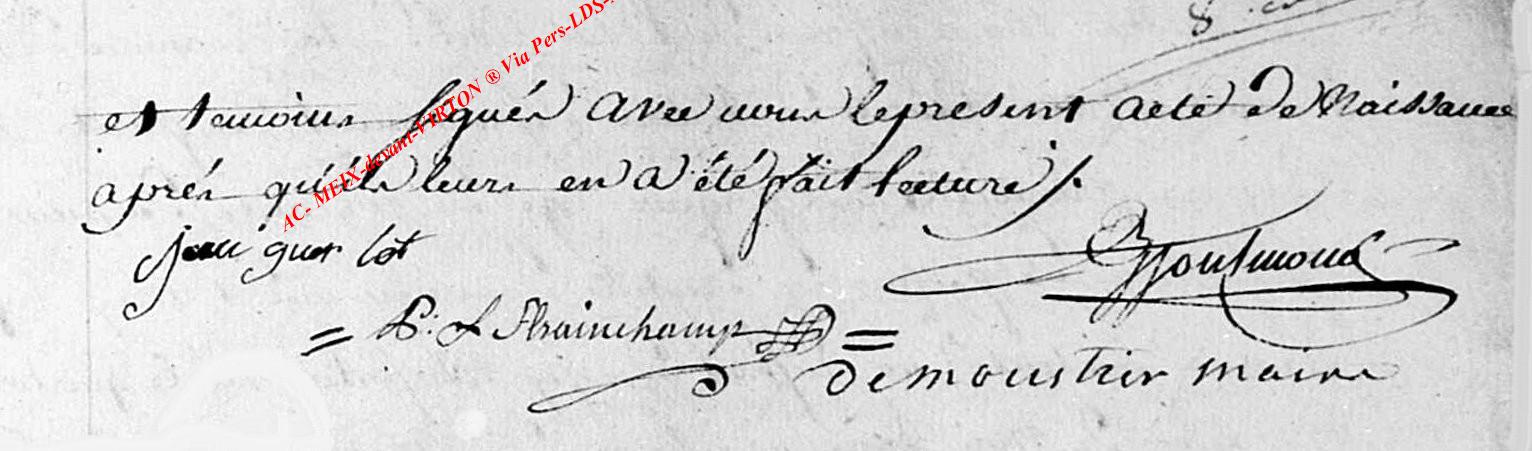 et temoins signés avec nous le present acte de Naissance
aprés qu'els leurs en a été fait lecture /.
jean guer lot
= P: J Strainchamp =
demoustier maire
AC- MEIX-devant-VIRTON ® Via Pers-LDS-